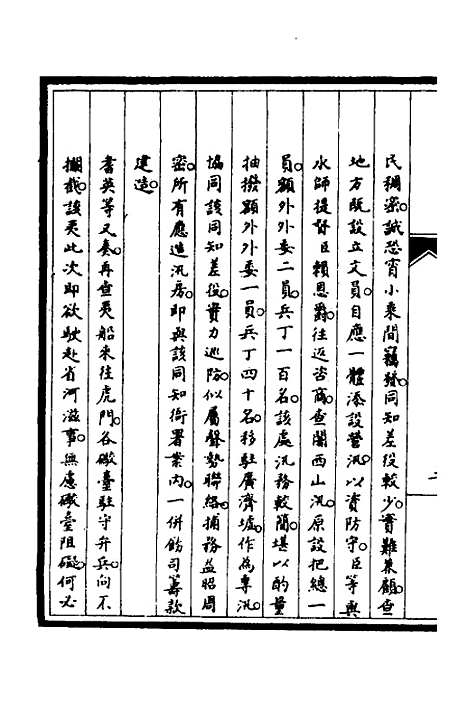 民稠密。誠恐宵小乘間竊發。同知差役較少。實難兼顧。查
地方既設立文員。自應一體添設營汛。以資防守。臣等與
水師提督臣賴恩爵。往返咨商。查閘西山汛。原設把總一
員。額外外委二員。兵丁一百名。該處汛務較簡。堪以酌量
抽撥額外外委一員。兵丁四十名。移駐廣濟墟。作為專汛。
協同該同知差役。實力巡防。似屬聲勢聯絡。捕務益昭周
密。所有應造汛房。即與該同知衙署案內。一併飭司籌款
建造。
耆英等又奏。再查夷船來往虎門。各礮臺駐守弁兵。向不
攔截。該夷此次即欲駛赴省河滋事。無慮礮臺阻礙。何必